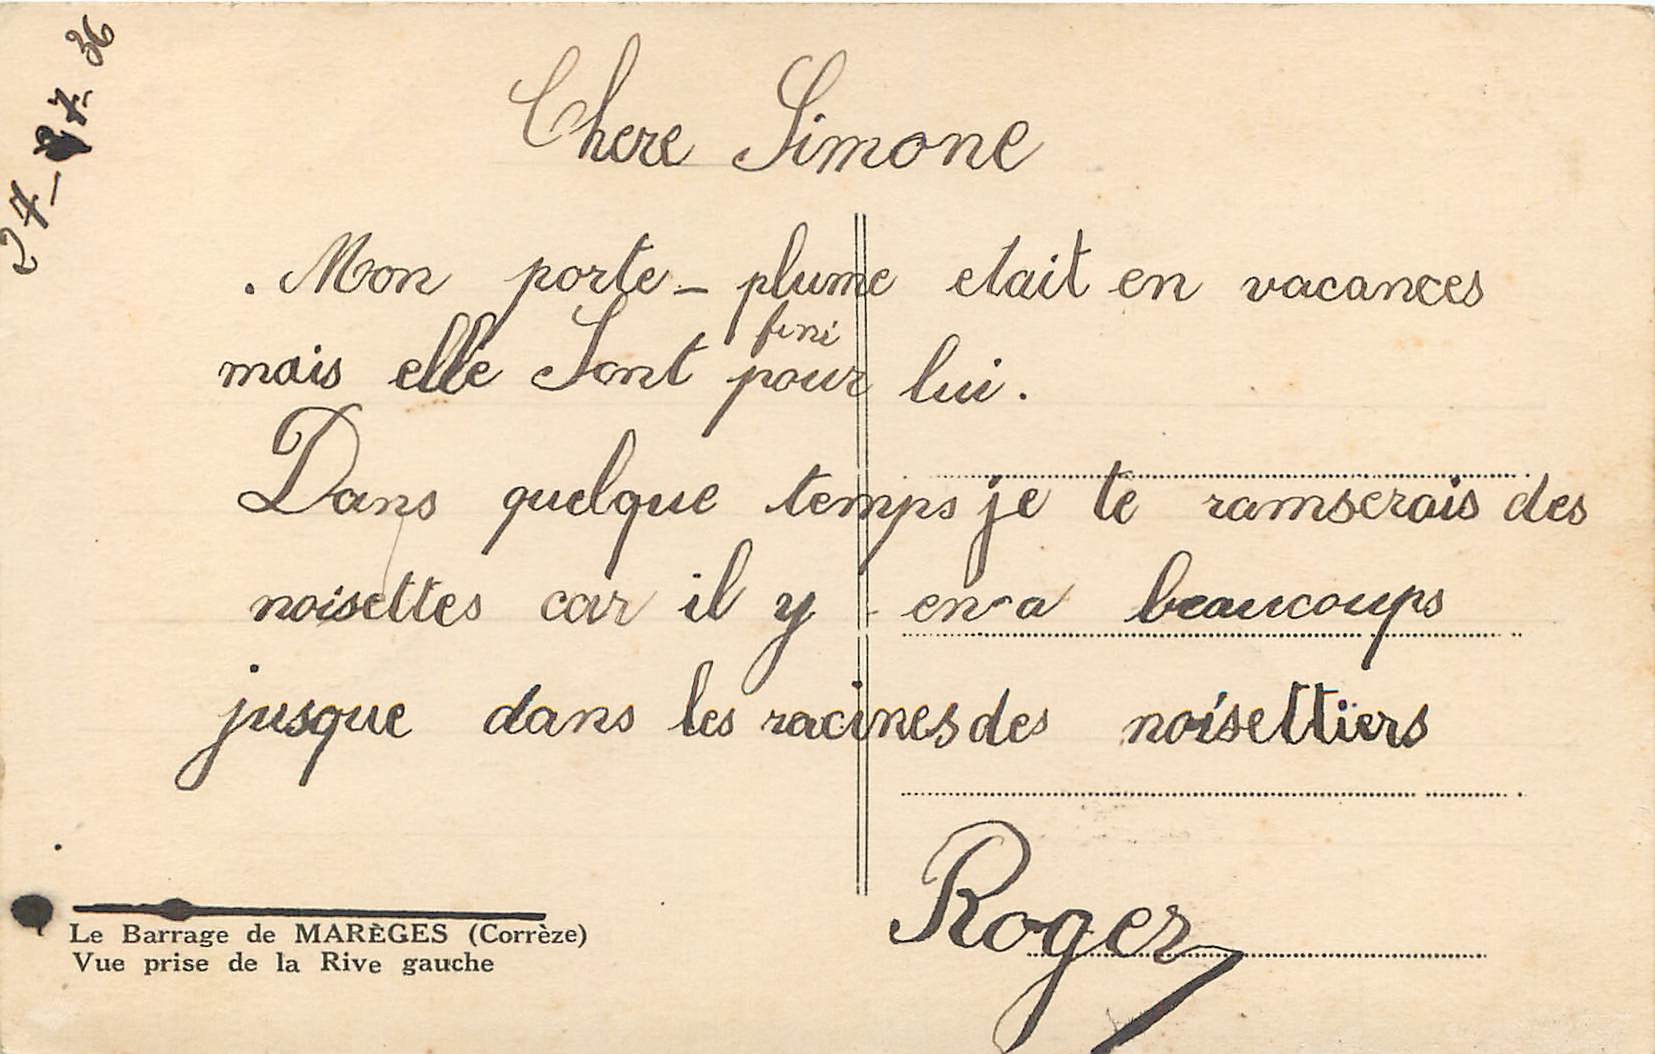 27-7-36
Chere Simone
. Mon porte-plume etait en vacances
fini
mais elle Sont pour lui.
Dans quelque temps je te ramserais des
noisettes car il y en a beaucoups
jusque dans les racines des noisettiers
Roger
Le Barrage de MARÈGES (Corrèze)
Vue prise de la Rive gauche